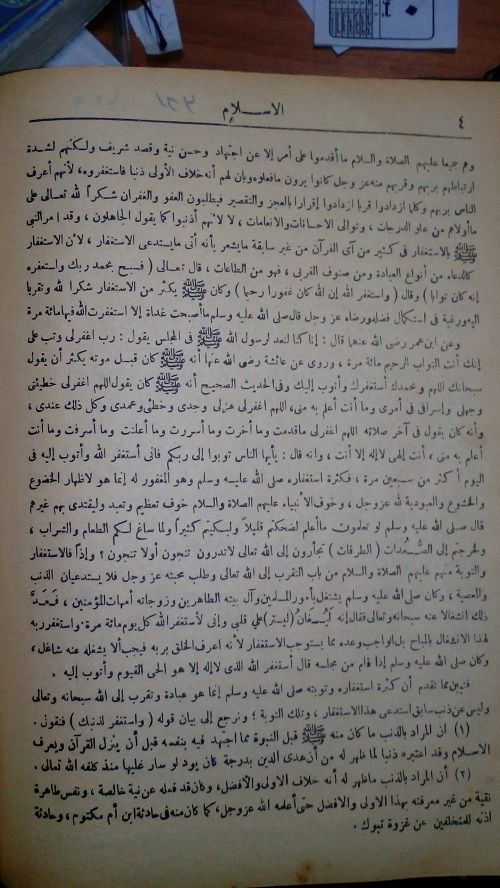 ٤
الاسلام
وهم جميعا عليهم الصلاة والسلام ما أقدموا على أمر إلا عن اجتهاد وحسن نية وقصد شريف ولكنهم لشدة
ارتباطهم بربهم وقربهم منه عز وجل كانوا يرون ما فعلوه وبان لهم أنه خلاف الأولى ذنبا فاستغفروه، لأنهم أعرف
الناس بربهم وكلما ازدادوا قربا ازدادوا إقرارا بالعجز والتقصير فيطلبون العفو والغفران شكرا لله تعالى على
ما أولاهم من علو الدرجات ، وتوالى الاحسانات والانعامات ، لا لأنهم أذنبوا كما يقول الجاهلون ، وقد أمر النبى
ﷺ بالاستغفار فى كثير من آى القرآن من غير سابقة ما يشعر بأنه أتى ما يستدعى الاستغفار ، لأن الاستغفار
كالدعاء من أنواع العبادة ومن صنوف القربى ، فهو من الطاعات ، قال تعالى ( فسبح بحمد ربك واستغفره
إنه كان توابا ) وقال ( واستغفر الله إن الله كان غفورا رحيما ) وكان ﷺ يكثر من الاستغفار شكرا لله وتقربا
اليه ورغبة فى استكمال فضله ورضاه عز وجل قال صلى الله عليه وسلم ما أصبحت غداة إلا استغفرت الله فيها مائة مرة
وعن ابن عمر رضى الله عنهما قال : إنا كنا لنعد لرسول الله ﷺ فى المجلس يقول : رب اغفر لى وتب على
إنك أنت التواب الرحيم مائة مرة ، وروى عن عائشة رضى الله عنها أنه ﷺ كان قبل موته يكثر أن يقول
سبحانك اللهم وبحمدك أستغفرك وأتوب إليك وفى الحديث الصحيح أنه ﷺ كان يقول اللهم اغفر لى خطيئتى
وجهلى وإسرافى فى أمرى وما أنت أعلم به منى، اللهم اغفر لى هزلى وجدى وخطئى وعمدى وكل ذلك عندى ،
وأنه كان يقول فى آخر صلاته اللهم اغفر لى ما قدمت وما أخرت وما أسررت وما أعلنت وما أسرفت وما أنت
أعلم به منى ، أنت إلهى لا إله إلا أنت ، وانه قال : يأيها الناس توبوا إلى ربكم فانى أستغفر الله وأتوب إليه فى
اليوم أكثر من سبعين مرة ، فكثرة استغفاره صلى الله عليه وسلم وهو المغفور له إنما هو لاظهار الخضوع
والخشوع والعبودية لله عز وجل ، وخوف الأنبياء عليهم الصلاة والسلام خوف تعظيم وتعبد وليقتدى بهم غيرهم
قال صلى الله عليه وسلم لو تعلمون ما أعلم لضحكتم قليلاً ولبكيتم كثيراً ولما ساغ لكم الطعام والشراب ،
ولخرجتم إلى الصُّعُدات ( الطرقات ) تجأرون إلى الله تعالى لا تدرون تنجون أولا تنجون ؟ وإذاً فالاستغفار
والتوبة منهم عليهم الصلاة والسلام من باب التقرب إلى الله تعالى وطلب محبته عز وجل فلا يستدعيان الذنب
والمعصية ، وكان صلى الله عليه وسلم يشتغل بأمور المسلمين وآل بيته الطاهرين وزوجاته أمهات المؤمنين ، فَعَدَّ
ذلك انشغالا عنه سبحانه وتعالى فقال إنه لَيُغَان (ليستر) على قلبى وإنى لأستغفر الله كل يوم مائة مرة . واستغفر ربه
لهذا الانشغال بالمباح بل الواجب وعده مما يستوجب الاستغفار لأنه أعرف الخلق بربه فيجب ألا يشغله عنه شاغل ،
وكان صلى الله عليه وسلم إذا قام من مجلسه قال أستغفر الله الذى لا إله إلا هو الحى القيوم وأتوب إليه .
فتبين مما تقدم أن كثرة استغفاره وتوبته صلى الله عليه وسلم إنما هو عبادة وتقرب إلى الله سبحانه وتعالى
وليس عن ذنب سابق استدعى هذا الاستغفار ، وتلك التوبة ؛ ونرجع إلى بيان قوله ( واستغفر لذنبك ) فنقول .
(١) ان المراد بالذنب ما كان منه ﷺ قبل النبوة مما اجتهد فيه بنفسه قبل أن ينزل القرآن ويعرف
الاسلام وقد اعتبره ذنبا لما ظهر له من أن هدى الدين بدرجة كان يود لو سار عليها منذ كلفه الله تعالى .
(٢) أن المراد بالذنب ما ظهر له أنه خلاف الاولى والأفضل، وكان قد فعله عن نية خالصة ، ونفس طاهرة
نقية من غير معرفته بهذا الاولى والافضل حتى أعلمه الله عز وجل، كما كان منه فى حادثة ابن أم مكتوم ، وحادثة
اذنه للمتخلفين عن غزوة تبوك .